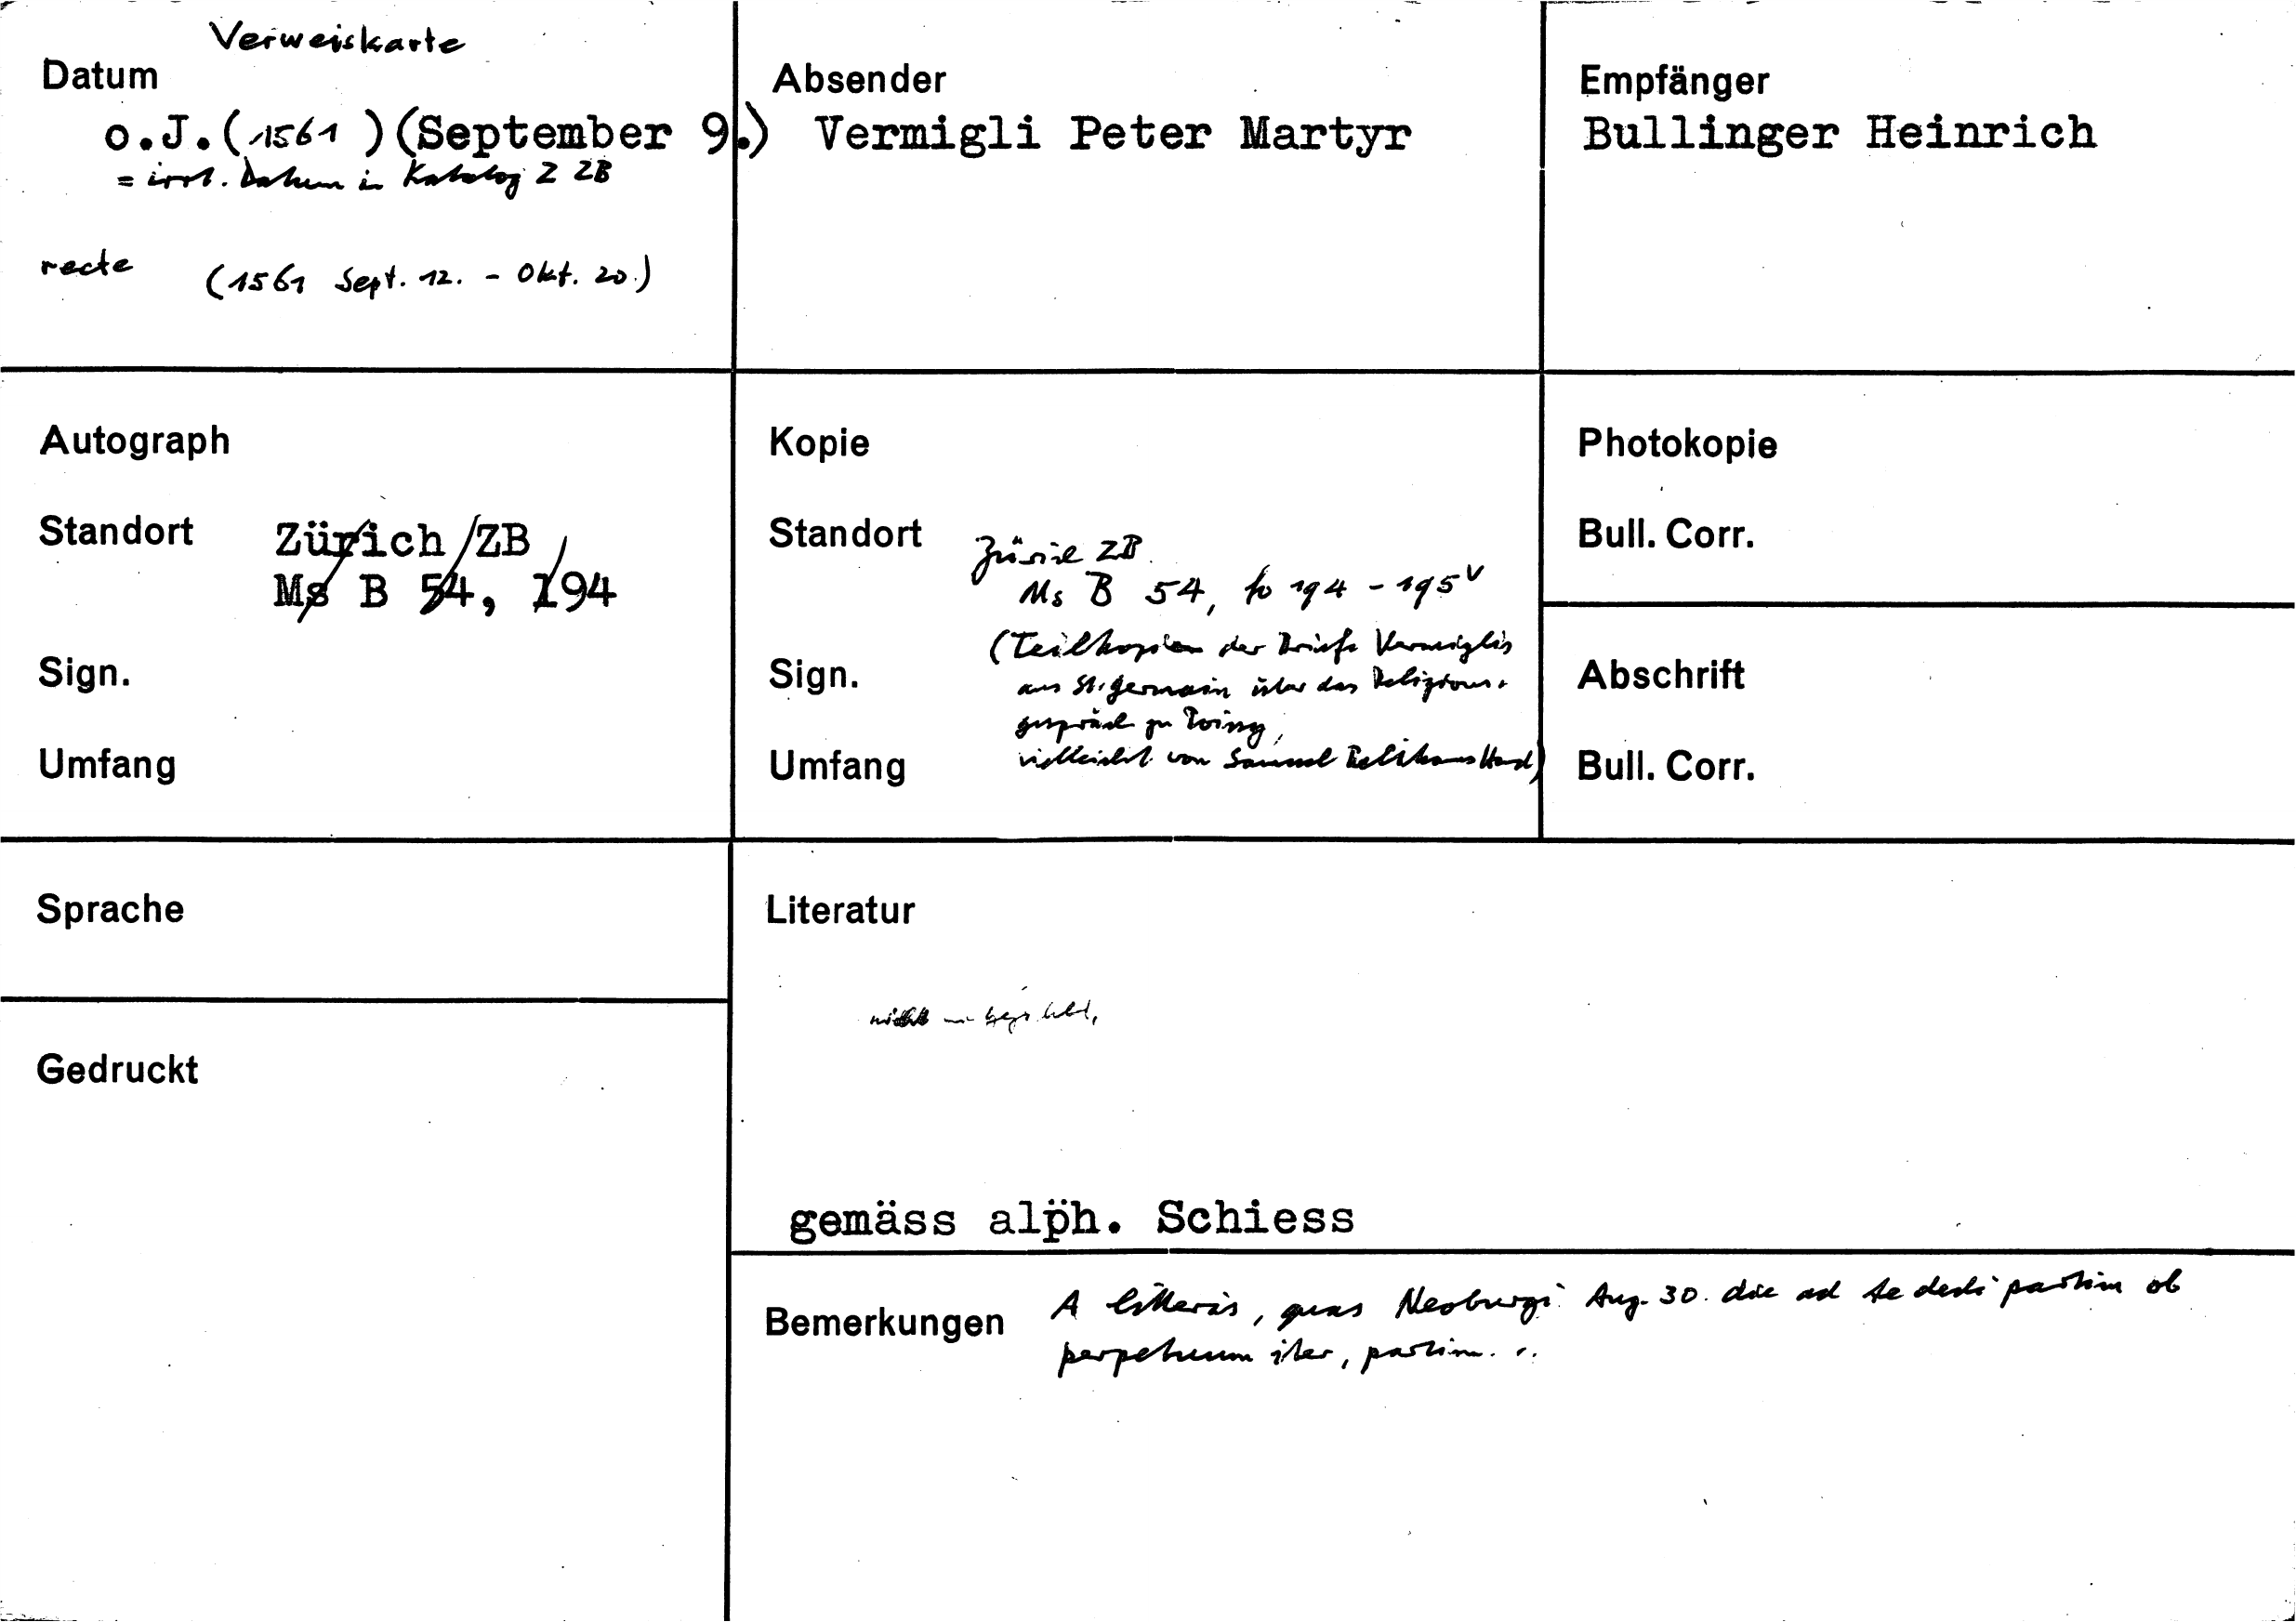 Verweiskarte
Datum
o.J.(1561 )(September 9.)
= irrt. Datum in Katalog Z ZB
recte (1561 Sept. 12. - Okt. 20.)
Absender
Vermigli Peter Martyr
Empfänger
Bullinger Heinrich
Autograph
Standort Zürich/ZB
Ms B 54, 194
Sign.
Umfang
Kopie
Standort Zürich ZB
Ms B 54, fo 194 - 195v
(Teilkopien der Briefe Vermiglis
Sign. aus St. Germain über das Religions-
gespräch zu Poissy,
Umfang vielleicht von Samuel Pellikans Hand)
Photokopie
Bull. Corr.
Abschrift
Bull. Corr.
Sprache
Gedruckt
Literatur
nicht
gemäss alph. Schiess
Bemerkungen A litteris, quas Neoburgi Aug. 30. die ad te dedi partim ob
perpetuum iter, partim...